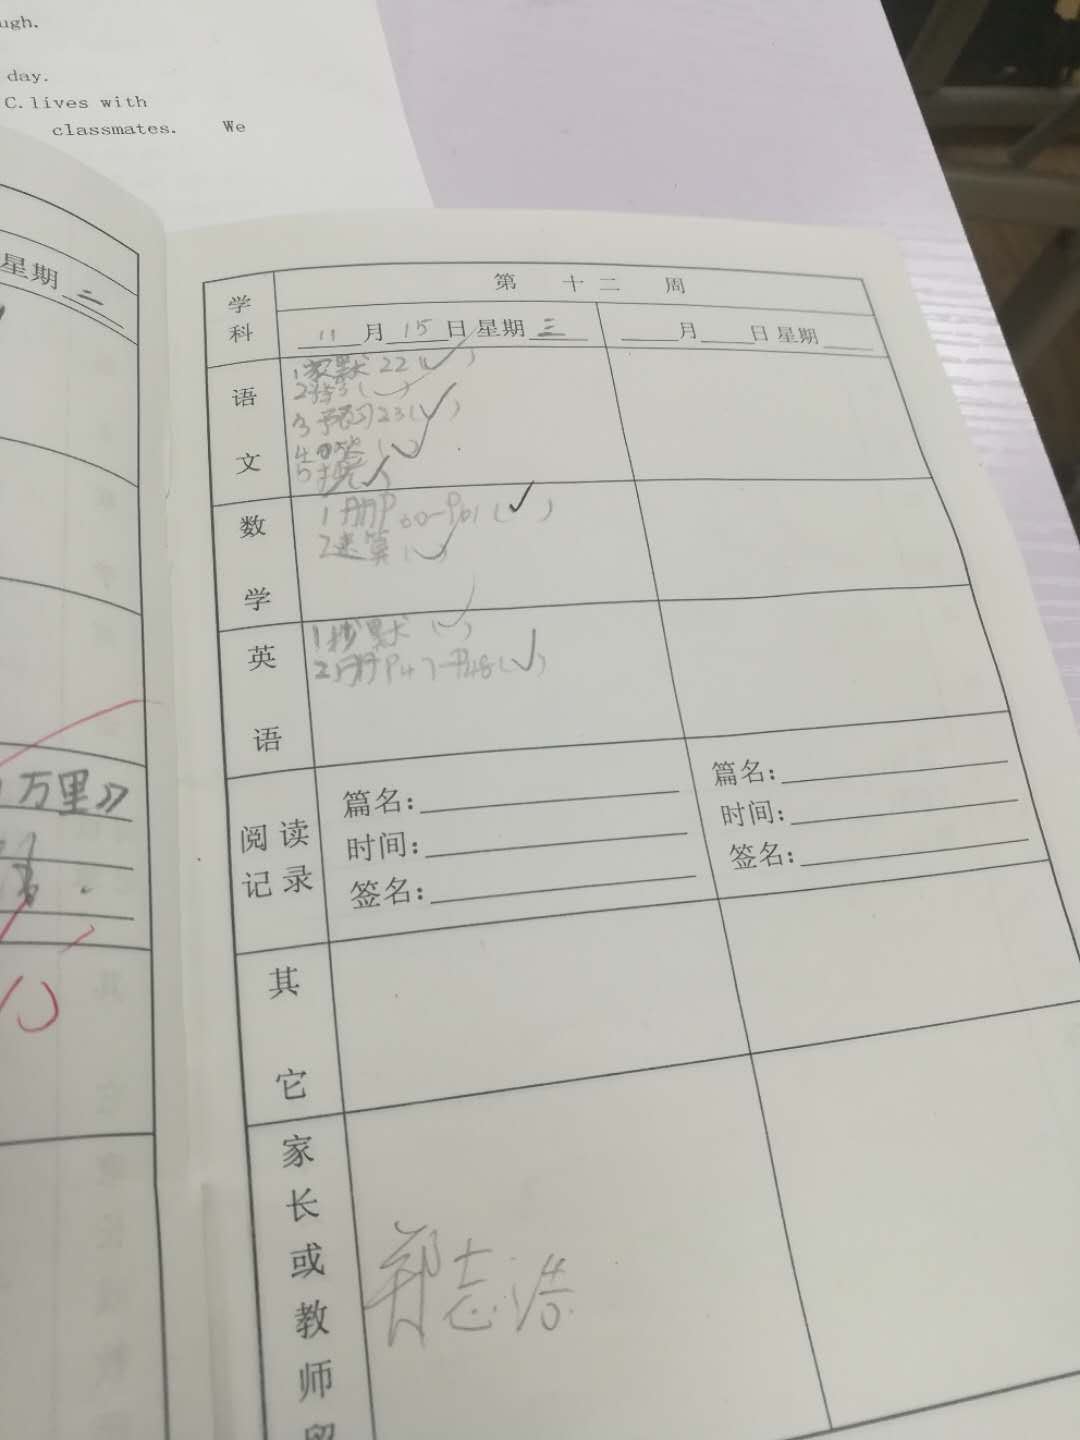 ugh.
day.
C.lives with
classmates. We
星期 二
万里》
学科
第 十二 周
11 月 15 日 星期 三
月 日 星期
语文
1家默 22(✓)
3预习23(✓)
数学
1册P60-P61(✓)
2速算(✓)
英语
1抄默(✓)
2册P47-P48(✓)
阅读记录
篇名:
时间:
签名:
篇名:
时间:
签名:
其它
家长或教师留
郑志浩